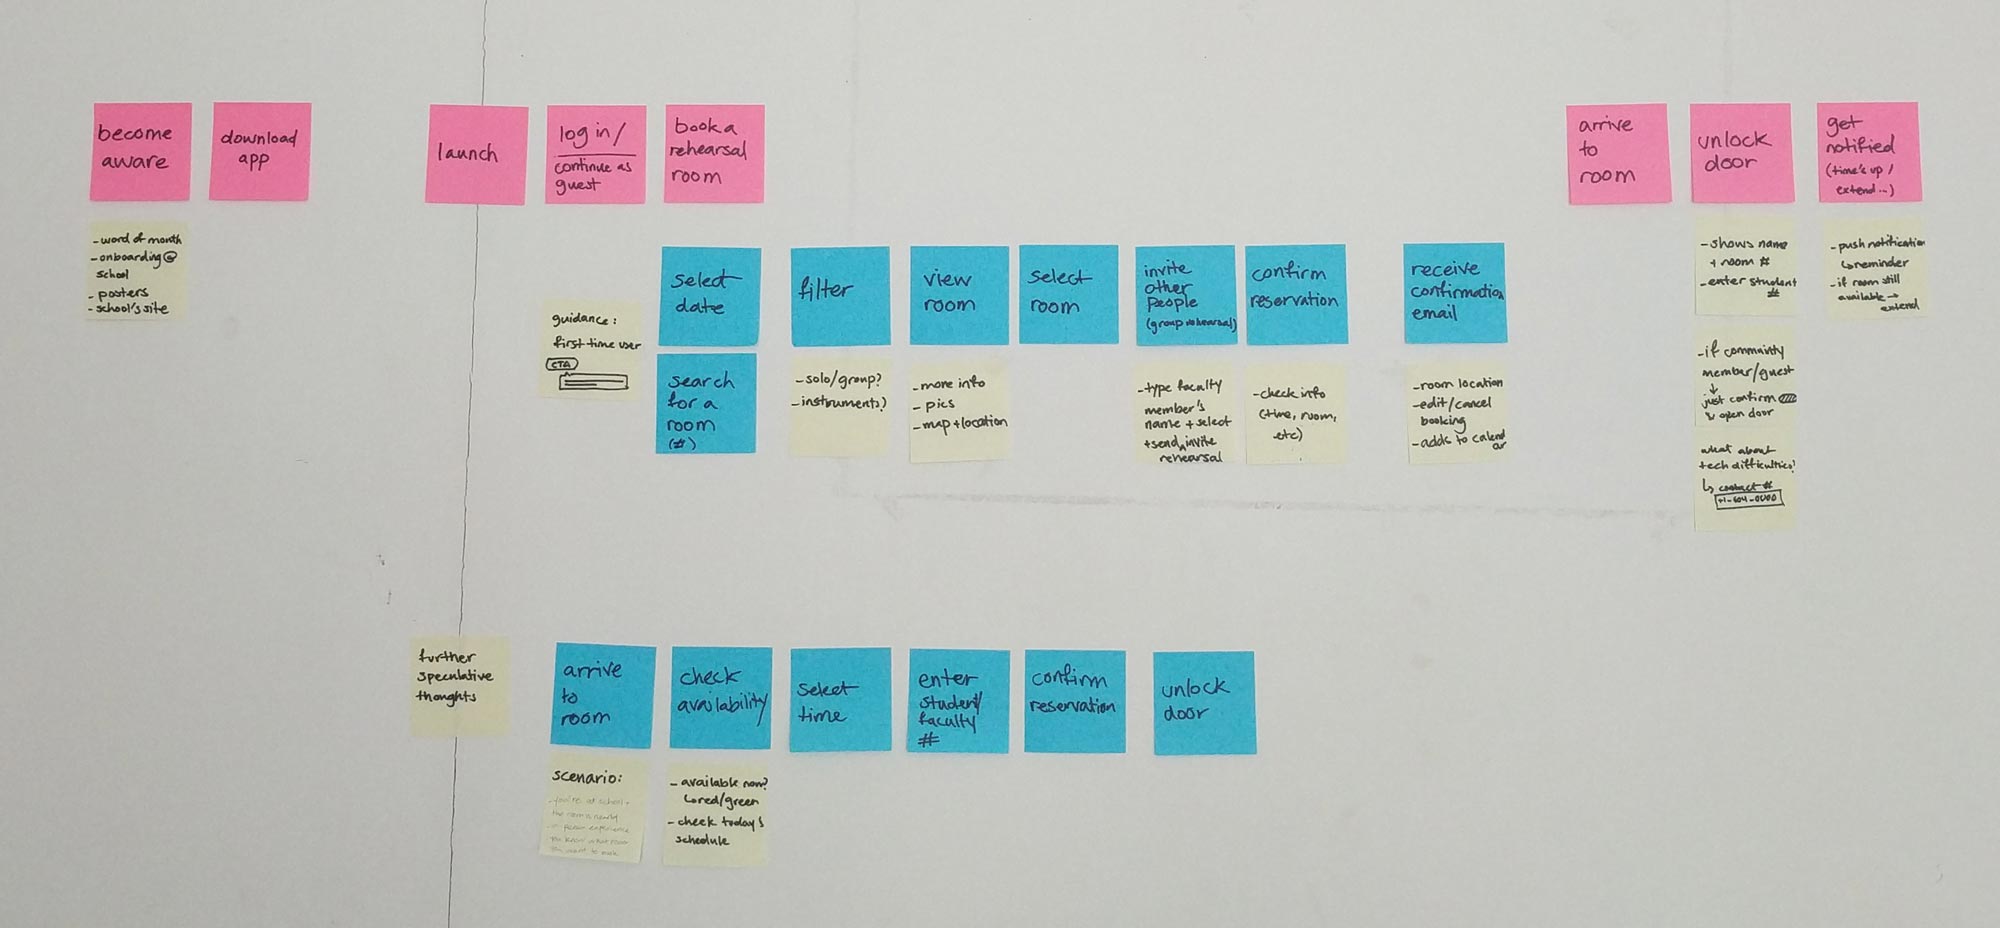 become
aware
download
app
launch
log in/
continue as
guest
book a
rehearsal
room
arrive
to
room
unlock
door
get
notified
(time's up /
extend...)
- word of month
- onboarding @
school
- posters
- school's site
guidance:
first time user
CTA
select
date
search
for a
room
(#)
filter
- solo/group?
- instruments?
view
room
- more info
- pics
- map + location
select
room
invite
other
people
(group rehearsal)
- type faculty
member's
name + select
+ send invite
rehearsal
confirm
reservation
- check info
(time, room,
etc)
receive
confirmation
email
- room location
- edit/cancel
booking
- adds to calendar
- shows name
+ room #
- enter student
#
- if commainty
member/guest
↓
just confirm
& open door
what about
tech difficulties?
↳ contact #
+1-604-0000
- push notification
↳ reminder
- if room still
available →
extend
further
speculative
thoughts
arrive
to
room
scenario:
- you're at school +
the room is nearby
- in person experience
you know what room
you want to book
check
availability
- available now?
↳ red/green
- check today's
schedule
select
time
enter
student/
faculty
#
confirm
reservation
unlock
door